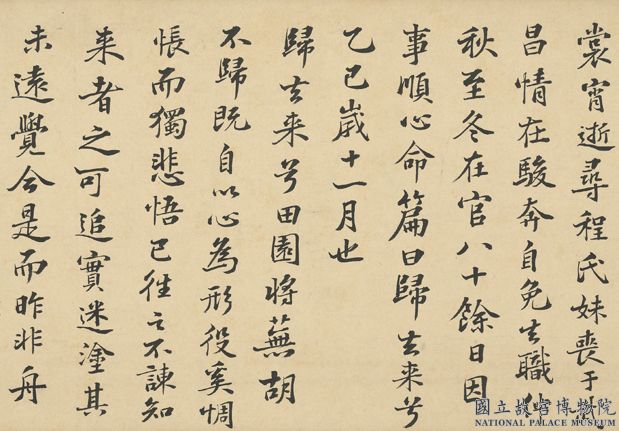 裳宵逝尋程氏妹喪于武
昌情在駿奔自免去職仲
秋至冬在官八十餘日因
事順心命篇曰歸去来兮
乙巳歲十一月也
歸去来兮田園將蕪胡
不歸既自以心為形役奚惆
悵而獨悲悟已往之不諫知
来者之可追實迷塗其
未遠覺今是而昨非舟
國立故宮博物院
NATIONAL PALACE MUSEUM